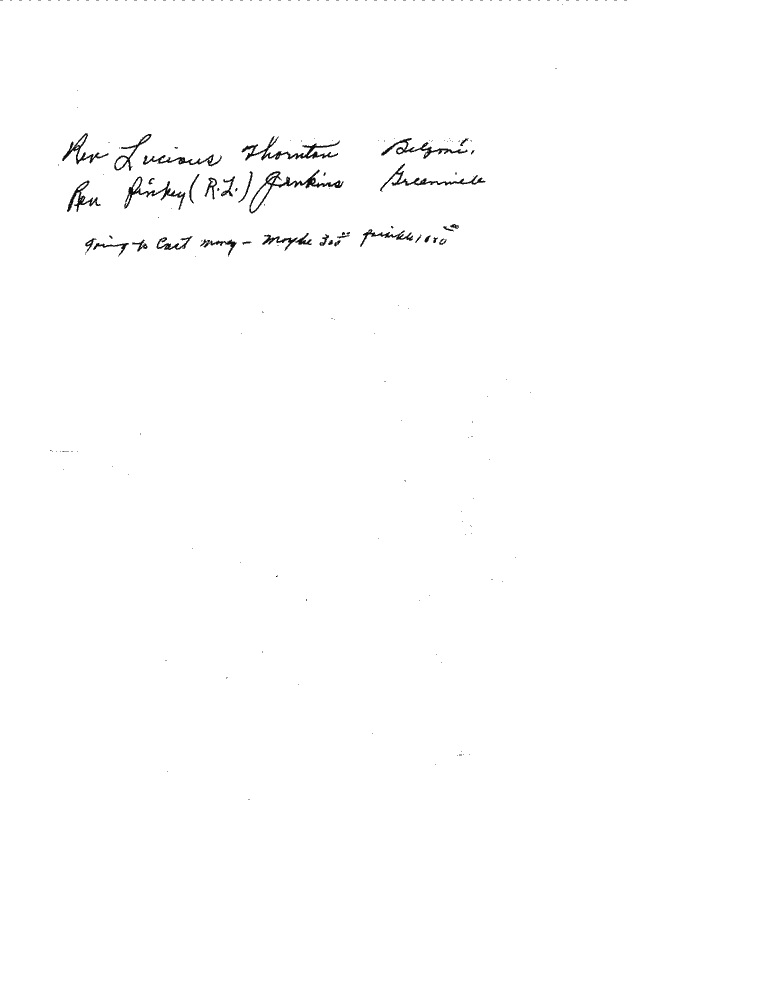 Rev Lucious Thornton Belzoni,
Rev Pinkey (R.L.) Jenkins Greenville
going to Cost money - Maybe 300⁰⁰